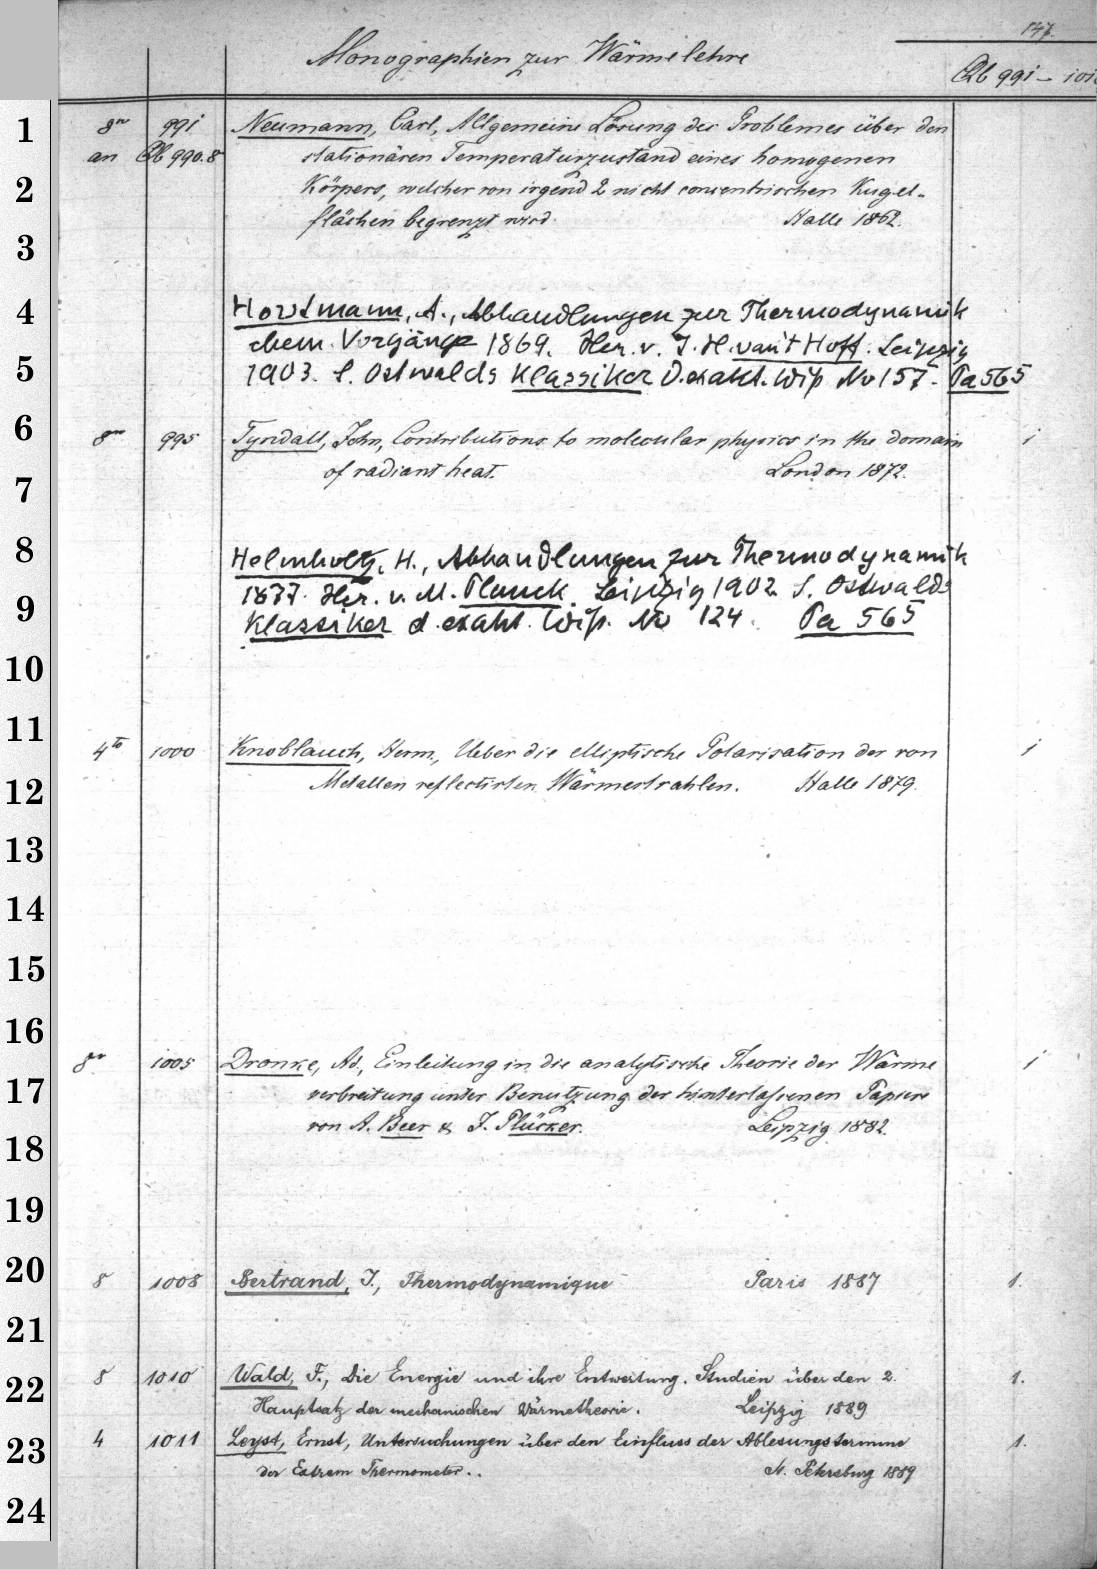 147.
Monographien zur Wärmelehre
Qb 991 - 101
1
8vo 991 Neumann, Carl, Allgemeine Lösung des Problemes über den
an Qb 990.8 stationären Temperaturzustand eines homogenen
2
Körpers, welcher von irgend 2 nicht concentrischen Kugel-
flächen begrenzt wird. Halle 1862.
3
4
Horstmann, A., Abhandlungen zur Thermodynamik
chem. Vorgänge 1869. Her. v. J. H. van't Hoff. Leipzig
5
1903. S. Ostwalds Klassiker d. exakt. Wiß No 157. Pa 565
6
8vo 995 Tyndall, John, Contributions to molecular physics in the domain 1
of radiant heat. London 1872.
7
8
Helmholtz, H., Abhandlungen zur Thermodynamik
9
1877. Her. v. M. Planck. Leipzig 1902. S. Ostwalds
Klassiker d. exakt. Wiß. No 124. Pa 565
10
11
4to 1000 Knoblauch, Herm., Ueber die elliptische Polarisation der von 1
12
Metallen reflectirten Wärmestrahlen. Halle 1879.
13
14
15
16
8vo 1005 Dronke, Ad., Einleitung in die analytische Theorie der Wärme 1
17
verbreitung unter Benutzung der hinterlassenen Papiere
von A. Beer & J. Plücker. Leipzig 1882.
18
19
20
8 1008 Bertrand, J., Thermodynamique Paris 1887 1.
21
22
8 1010 Wald, F., Die Energie und ihre Entwertung. Studien über den 2. 1.
Hauptsatz der mechanischen Wärmetheorie. Leipzig 1889
23
4 1011 Leyst, Ernst, Untersuchungen über den Einfluss der Ablesungstermine 1.
der Extrem Thermometer.. St. Petersburg 1889
24